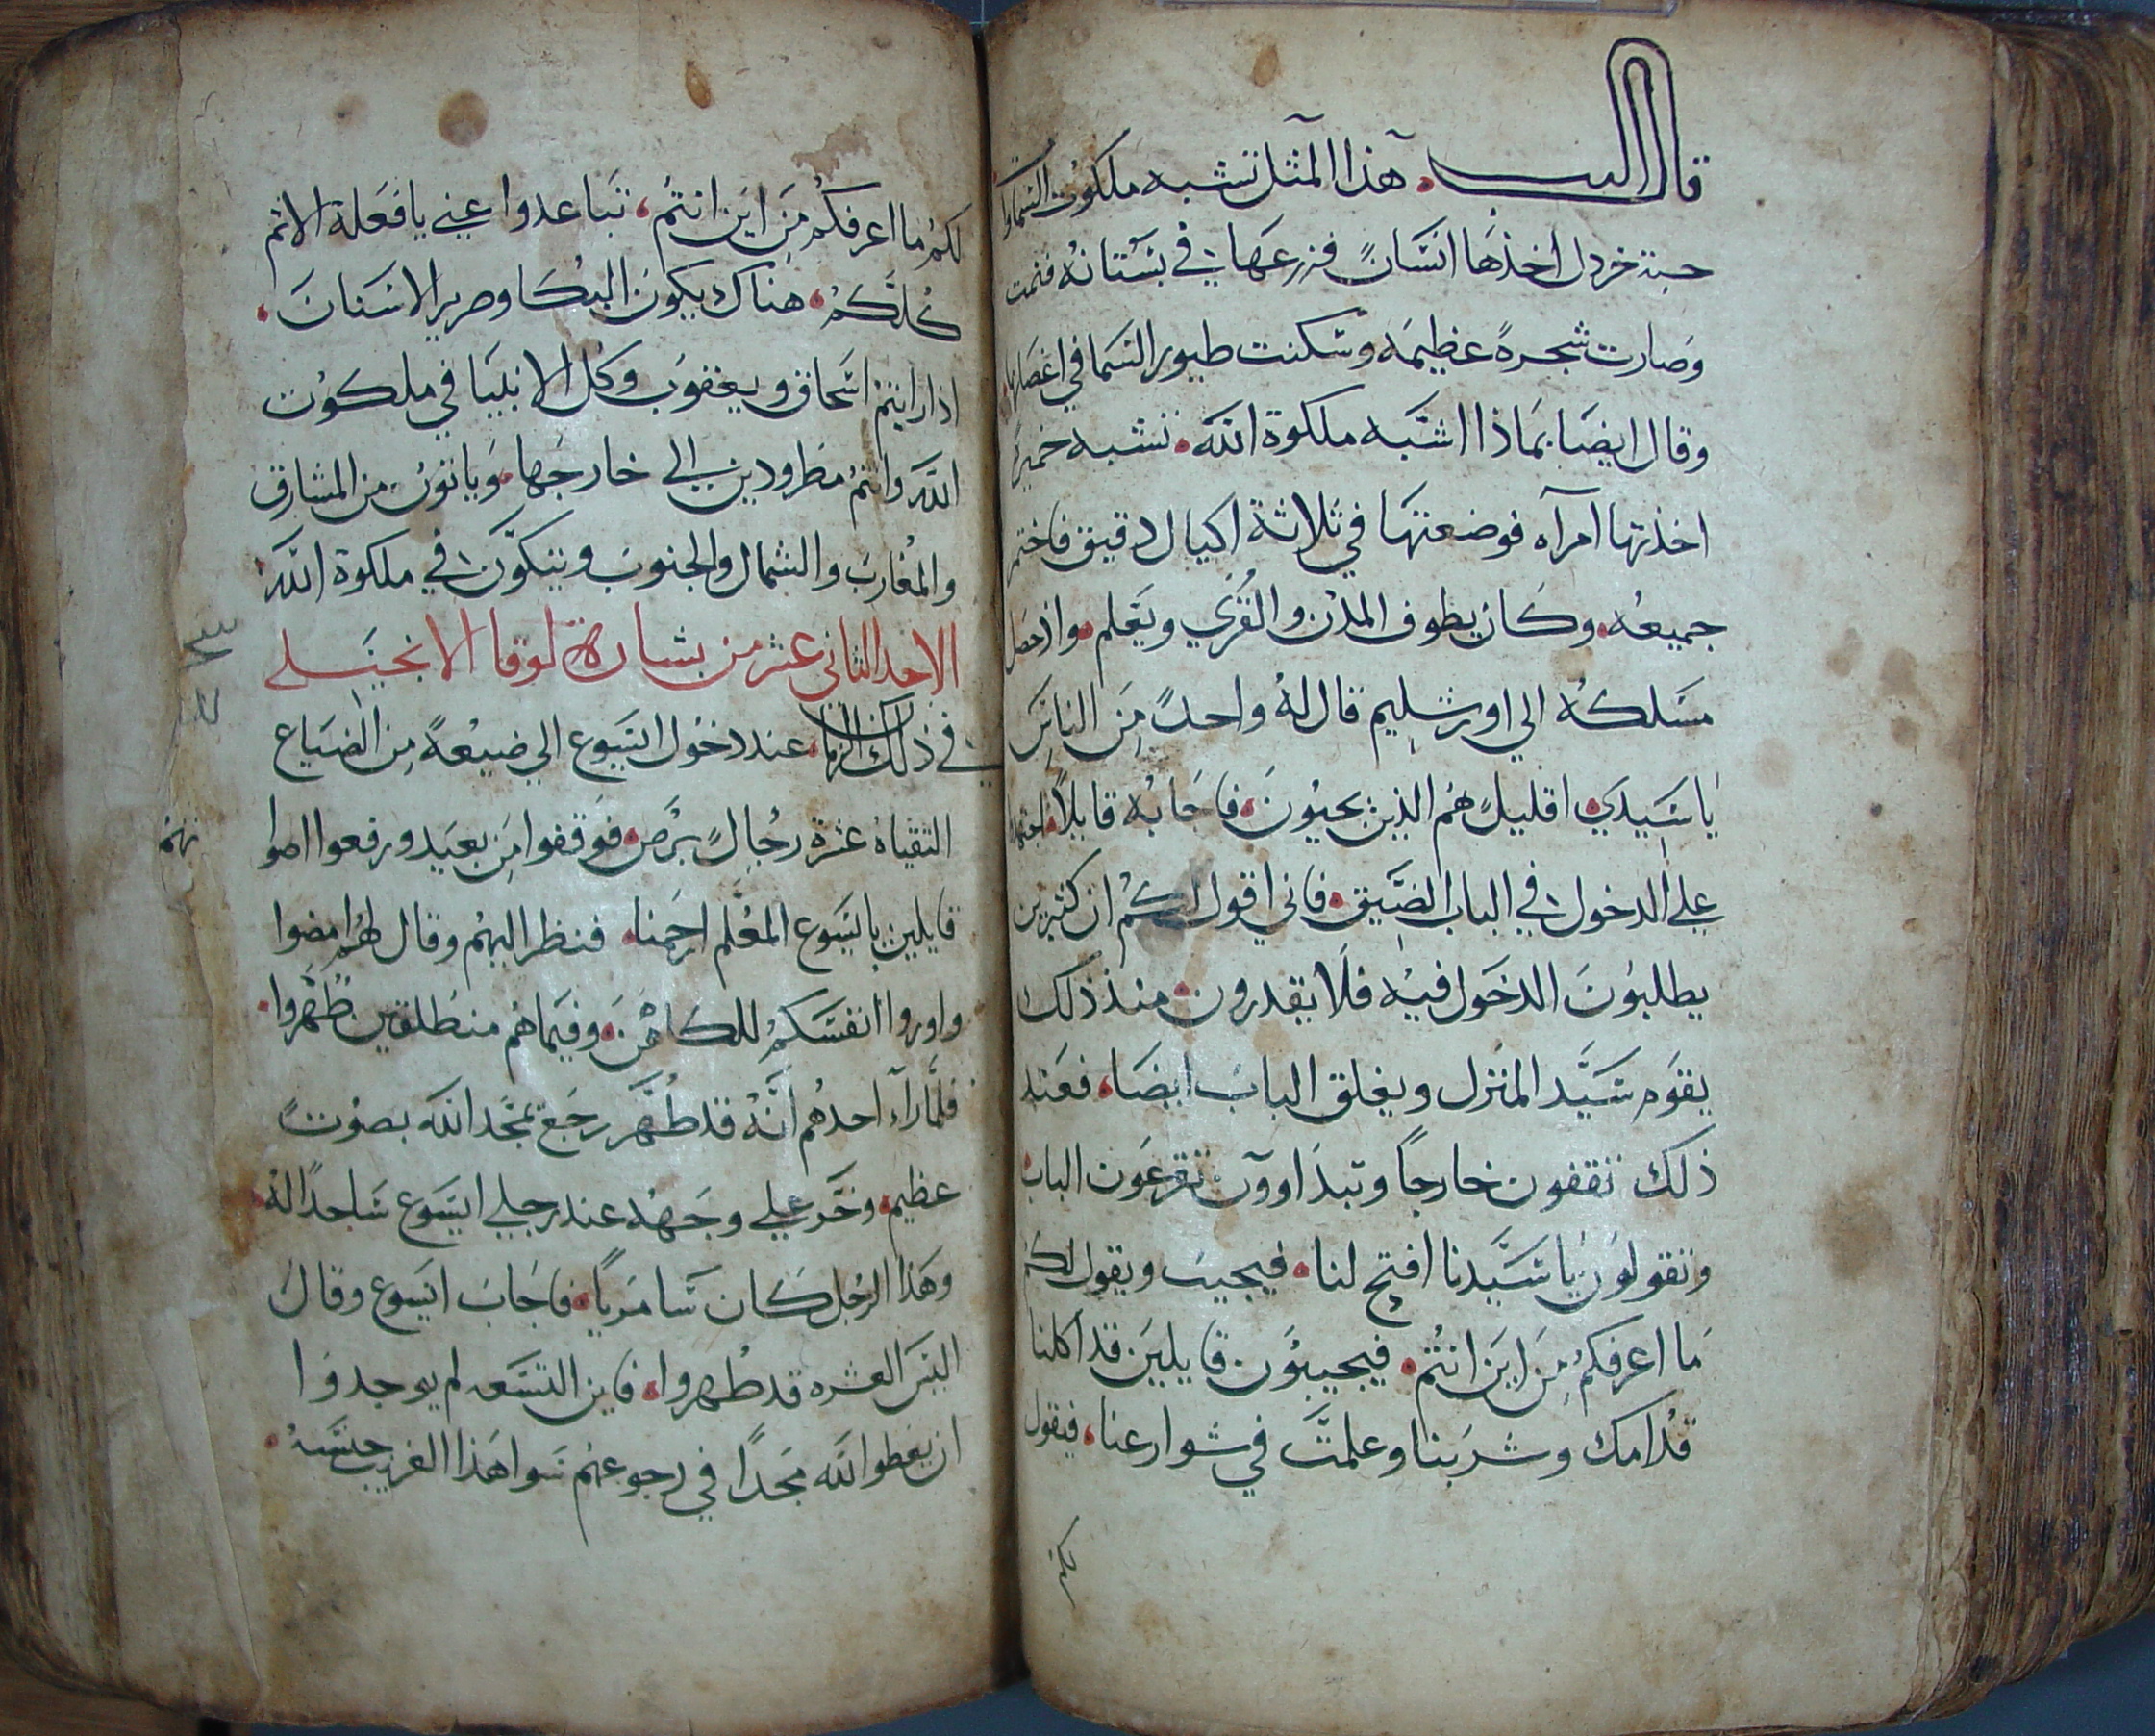 قال الرب هذا المثل تشبه ملكوت السماوات
حبة خردل اخذها انسانً فزرعها في بستانه فنمت
وصارت شجرةً عظيمه وسكنت طيور السما في اغصانها
وقال ايضا بماذا اشبه ملكوة الله تشبه خميرةً
اخذتها امرآه فوضعتها في ثلاثة اكيال دقيق فاختمر
جميعه وكان يطوف المدن والقرى ويعلم واذ حصل
مسلكه الي اورشليم قال له واحدً من الناس
يا سيدي اقليلً هم الذين يحيون فاجابه قايلاً اجتهدوا
علي الدخول في الباب الضيق فاني اقول لكم ان كثيرين
يطلبون الدخول فيه فلا يقدرون منذ ذلك
يقوم سيد المنزل ويغلق الباب ايضا فعند
ذلك تقفون خارجاً وتبداوون تقرعون الباب
وتقولون يا سيدنا افتح لنا فيجيب ويقول لكم
ما اعرفكم من اين انتم فيجيبون قايلين قد اكلنا
قدامك وشربنا وعلمت في شوارعنا فيقول
لكم
لكم ما اعرفكم من اين انتم تباعدوا عني يا فعلة الاثم
كلكم هناك يكون البكا وصرير الاسنان
اذا رايتم اسحاق ويعقوب وكل الانبيا في ملكوت
الله وانتم مطرودين الي خارجها وياتون من المشارق
والمغارب والشمال والجنوب ويتكون في ملكوة الله
الاحد الثاني عشر من بشارة لوقا الانجيلي
في ذلك الزمان عند دخول ايسوع الي ضيعةً من الضياع
التقياه عشرة رجالٍ برص فوقفوا من بعيد ورفعوا اصوا
تهم
قايلين يا ايسوع المعلم ارحمنا فنظر اليهم وقال لهم امضوا
واوروا انفسكم للكاهن وفيما هم منطلقين طهروا
فلما رآء احدهم انه قد طهر رجع يمجد الله بصوتً
عظيم وخر علي وجهه عند رجلي ايسوع ساجداً له
وهذا الرجل كان سامرياً فاجاب ايسوع وقال
اليس العشره قد طهروا فاين التسعه لم يوجدوا
ان يعطوا الله مجداً في رجوعهم سوا هذا الغريب جنسه